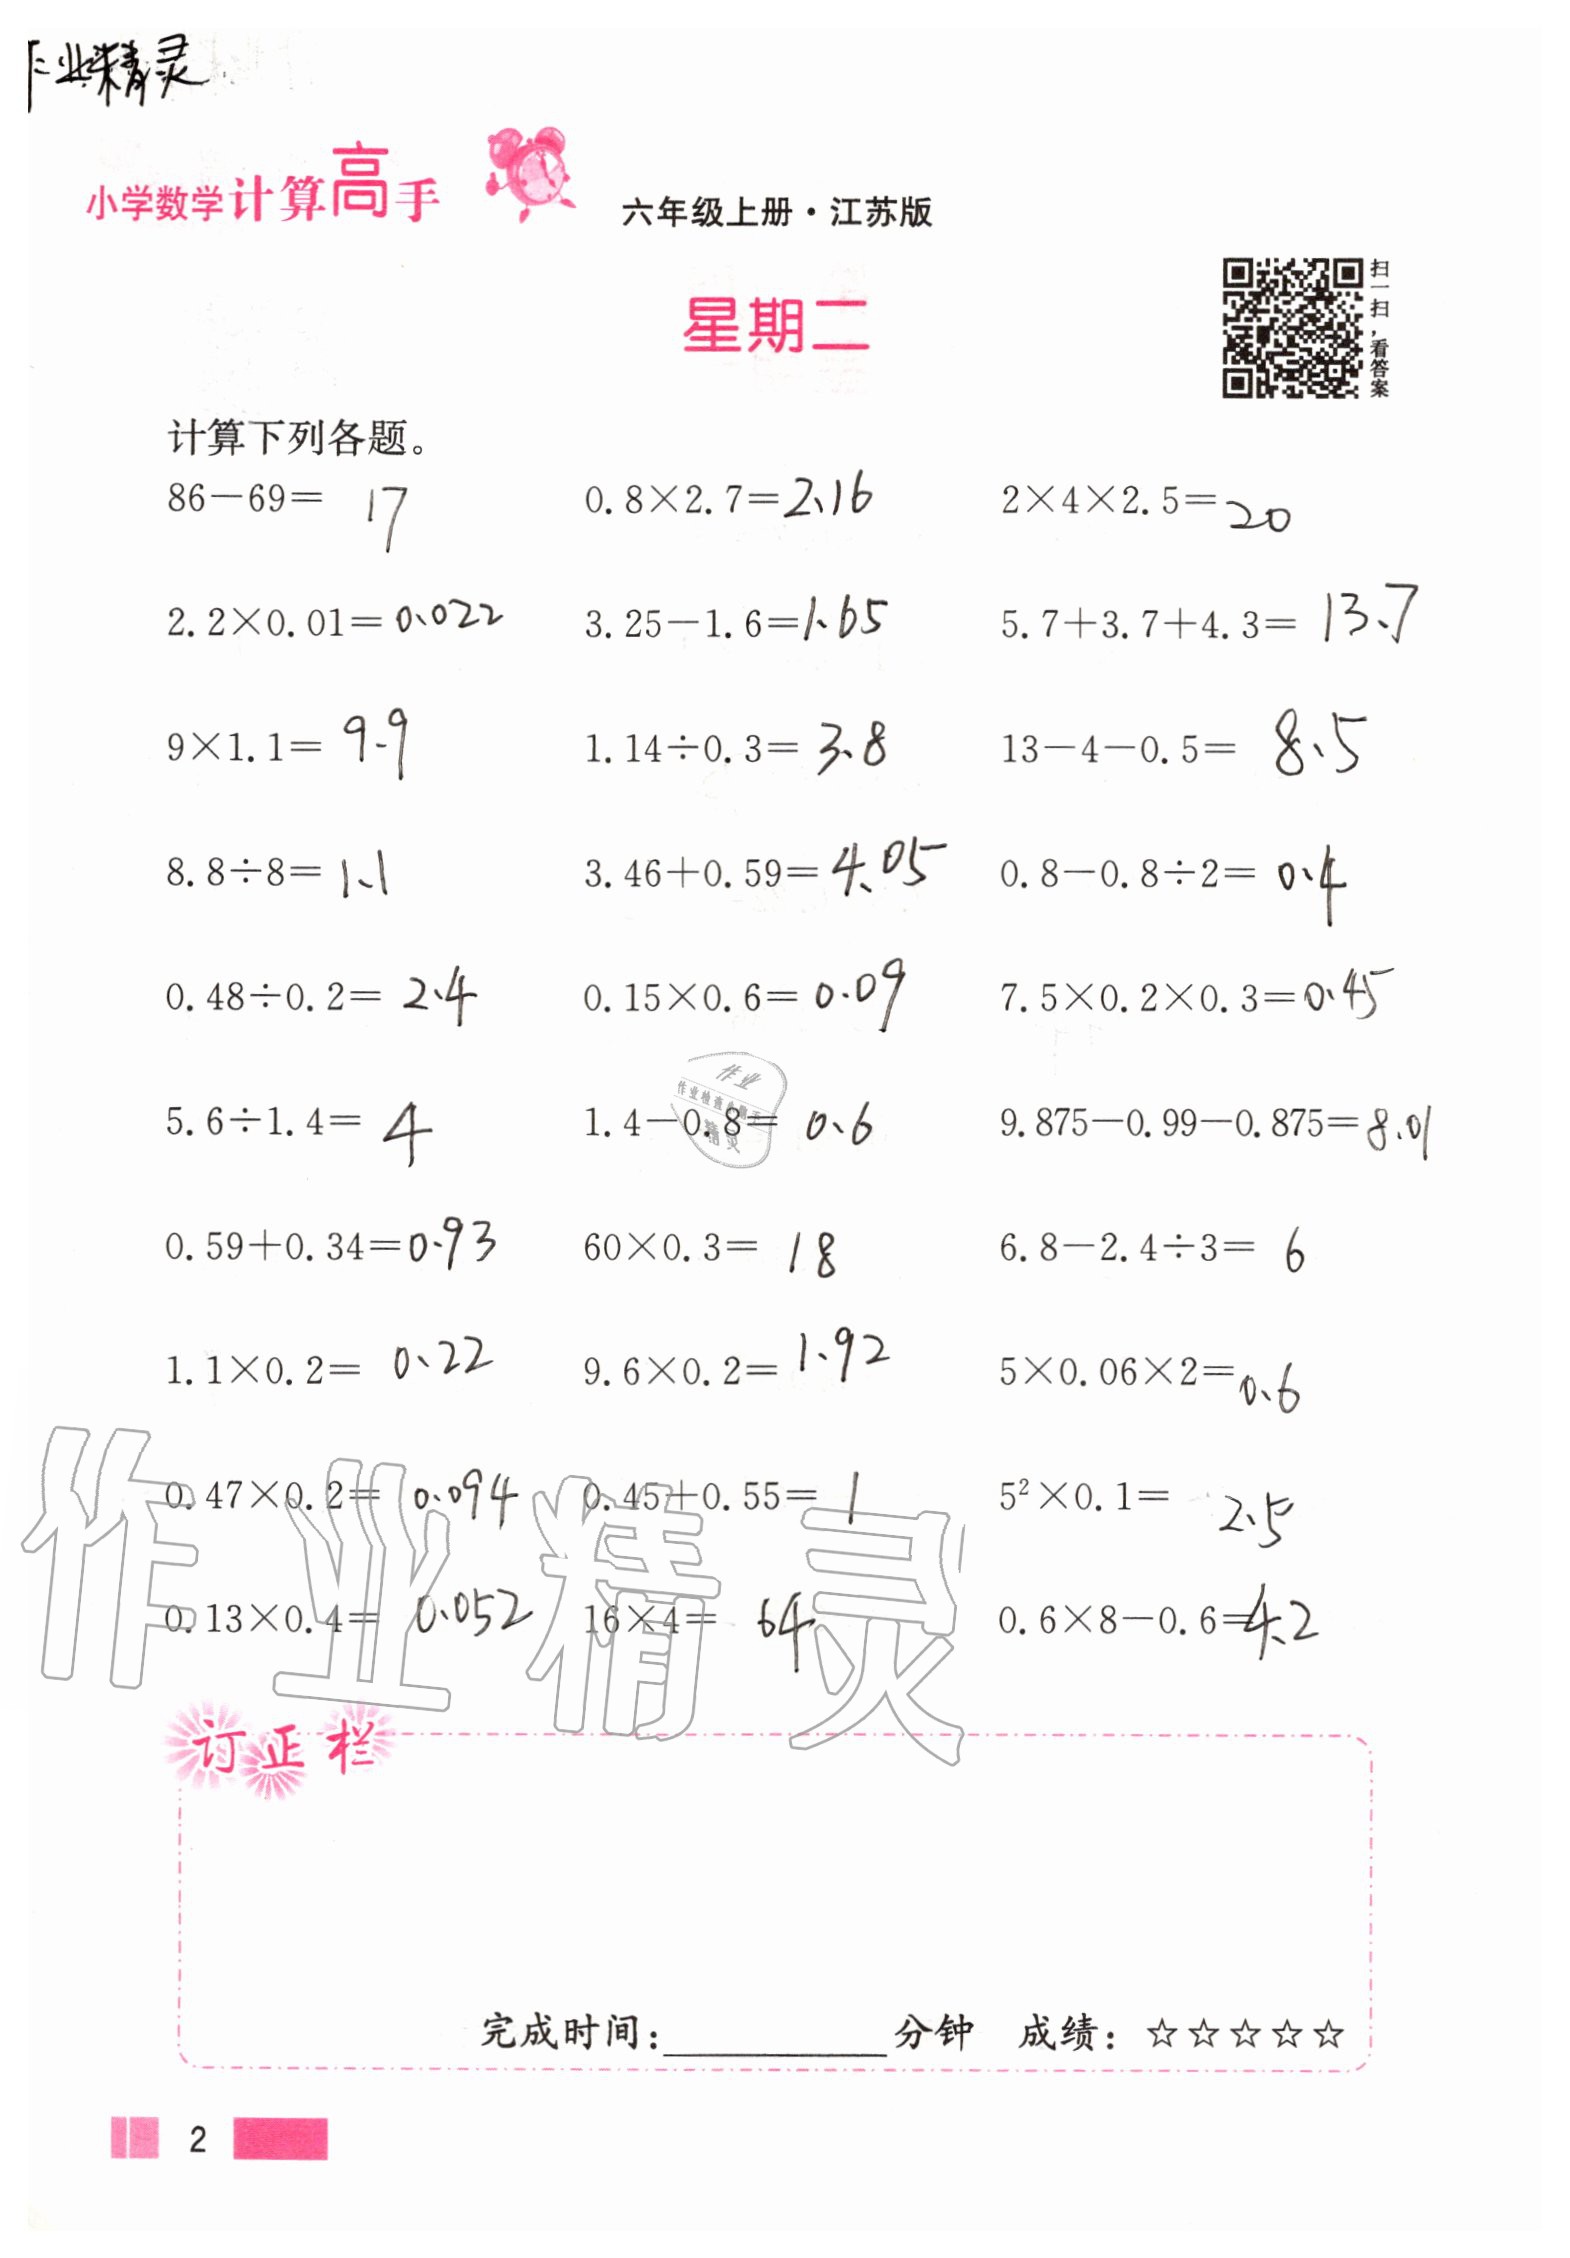 作业精灵
小学数学计算高手
六年级上册·江苏版
扫一扫,看答案
星期二
计算下列各题。
86-69= 17 0.8×2.7=2.16 2×4×2.5=20
2.2×0.01=0.022 3.25-1.6=1.65 5.7+3.7+4.3=13.7
9×1.1=9.9 1.14÷0.3=3.8 13-4-0.5=8.5
8.8÷8=1.1 3.46+0.59=4.05 0.8-0.8÷2=0.4
0.48÷0.2=2.4 0.15×0.6=0.09 7.5×0.2×0.3=0.45
作业
作业检查小助手
精灵
5.6÷1.4=4 1.4-0.8=0.6 9.875-0.99-0.875=8.01
0.59+0.34=0.93 60×0.3=18 6.8-2.4÷3=6
1.1×0.2=0.22 9.6×0.2=1.92 5×0.06×2=0.6
0.47×0.2=0.094 0.45+0.55=1 5²×0.1=2.5
作业精灵
0.13×0.4=0.052 16×4=64 0.6×8-0.6=4.2
订正栏
完成时间:________分钟 成绩:☆☆☆☆☆
2